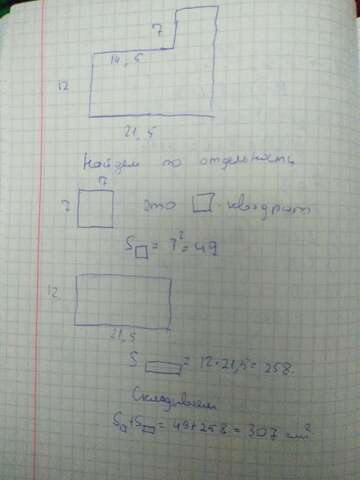 7
14,5
12
21,5
Найдем по отдельность
7
7 это □ - квадрат
S□ = 7² = 49
12
21,5
S▭ = 12·21,5 = 258.
Складываем
S□+S▭ = 49+258 = 307 см²